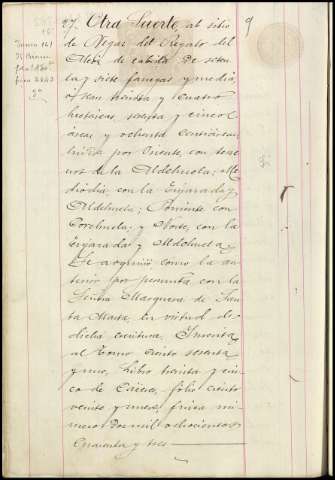 27. Otra Suerte, al sitio
9
de Vegas del Regato del
de cabida de seten
ta y siete fanegas y media,
o sean treinta y cuatro
hectáreas, sesenta y cinco
áreas y ochenta centiáreas
linda por Oriente, con terre
nos de la Aldehuela; Me
diodía, con la Enjarada y
Aldehuela; Poniente con
Corchuela; y Norte, con la
Enjarada y Aldehuela.
Se adquirió como la an
terior por permuta con la
Señora Marquesa de San
ta Marta, en virtud de
dicha escritura. Inscrita
al tomo ciento sesenta
y uno, libro treinta y cin
co de Cáceres, folio ciento
veinte y nueve, finca nú
mero dos mil ochocientos
cuarenta y tres